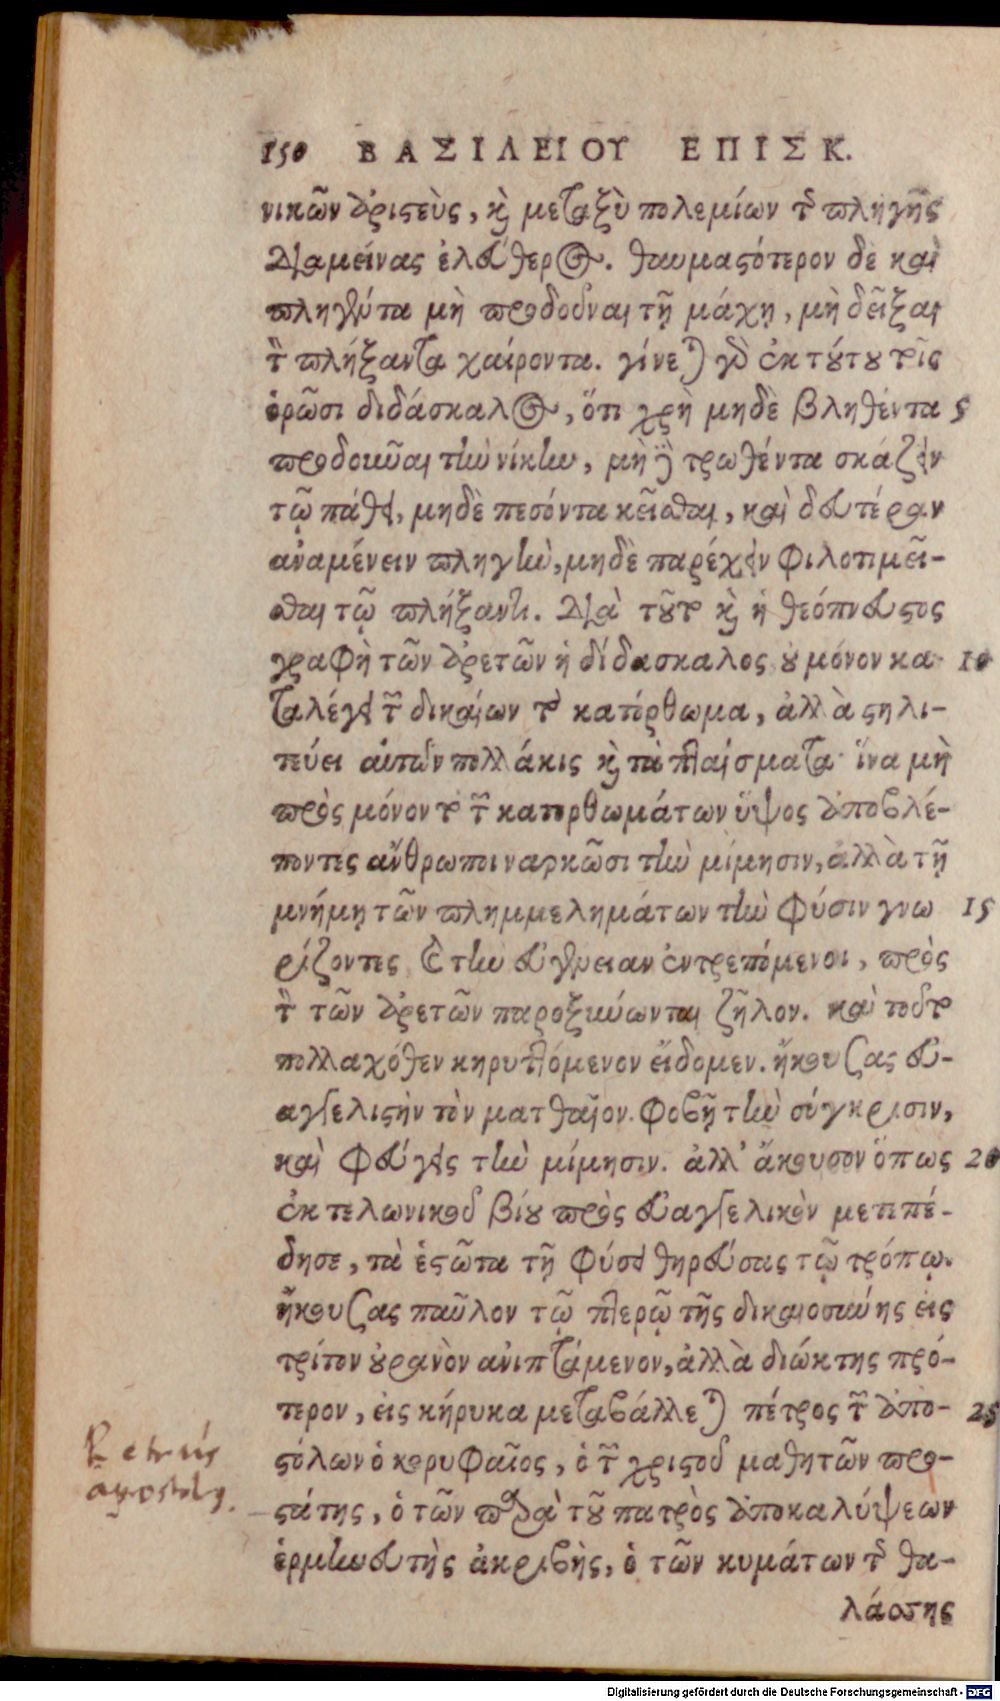 150 ΒΑΣΙΛΕΙΟΥ ΕΠΙΣΚ.
νικῶν ἀριστεὺς, καὶ μεταξὺ πολεμίων τῆς πληγῆς
διαμείνας ἐλεύθερος. θαυμαστότερον δὲ καὶ
πληγέντα μὴ προδοῦναι τῇ μάχῃ, μὴ δεῖξαι
τὸν πλήξαντα χαίροντα. γίνεται γὰρ ἐκ τούτου τοῖς
ὁρῶσι διδάσκαλος, ὅτι χρὴ μηδὲ βληθέντα 5
προδοῦναι τὴν νίκην, μὴ δὲ τρωθέντα σκάζειν
τῷ πάθει, μηδὲ πεσόντα κεῖσθαι, καὶ δευτέραν
ἀναμένειν πληγὴν, μηδὲ παρέχειν φιλοτιμεῖ-
σθαι τῷ πλήξαντι. διὰ τοῦτο καὶ ἡ θεόπνευστος
γραφὴ τῶν ἀρετῶν ἡ διδάσκαλος οὐ μόνον κα- 10
ταλέγει τῶν δικαίων τὸ κατόρθωμα, ἀλλὰ στηλι-
τεύει αὐτῶν πολλάκις καὶ τὰ πταίσματα· ἵνα μὴ
πρὸς μόνον τὸ τῶν κατορθωμάτων ὕψος ἀποβλέ-
ποντες ἄνθρωποι ναρκῶσι τὴν μίμησιν, ἀλλὰ τῇ
μνήμῃ τῶν πλημμελημάτων τὴν φύσιν γνω 15
ρίζοντες καὶ τὴν εὐγένειαν ἐντρεπόμενοι, πρὸς
τὸν τῶν ἀρετῶν παροξύνωνται ζῆλον. καὶ τοῦτο
πολλαχόθεν κηρυττόμενον εἴδομεν. ἤκουσας εὐ-
αγγελιστὴν τὸν ματθαῖον. φοβῇ τὴν σύγκρισιν,
καὶ φεύγεις τὴν μίμησιν. ἀλλ' ἄκουσον ὅπως 20
ἐκ τελωνικοῦ βίου πρὸς εὐαγγελικὸν μετεπέ-
δησε, τὰ ἑστῶτα τῇ φύσει θηρεύσας τῷ τρόπῳ.
ἤκουσας παῦλον τῷ πτερῷ τῆς δικαιοσύνης εἰς
τρίτον οὐρανὸν ἀνιπτάμενον, ἀλλὰ διώκτης πρό-
τερον, εἰς κήρυκα μεταβάλλεται πέτρος τῶν ἀπο- 25
στόλων ὁ κορυφαῖος, ὁ τῶν χριστοῦ μαθητῶν προ-
στάτης, ὁ τῶν παρὰ τοῦ πατρὸς ἀποκαλύψεων
ἑρμηνευτὴς ἀκριβὴς, ὁ τῶν κυμάτων τῆς θα-
λάσσης
Petrus
apostolus.
Digitalisierung gefördert durch die Deutsche Forschungsgemeinschaft - DFG